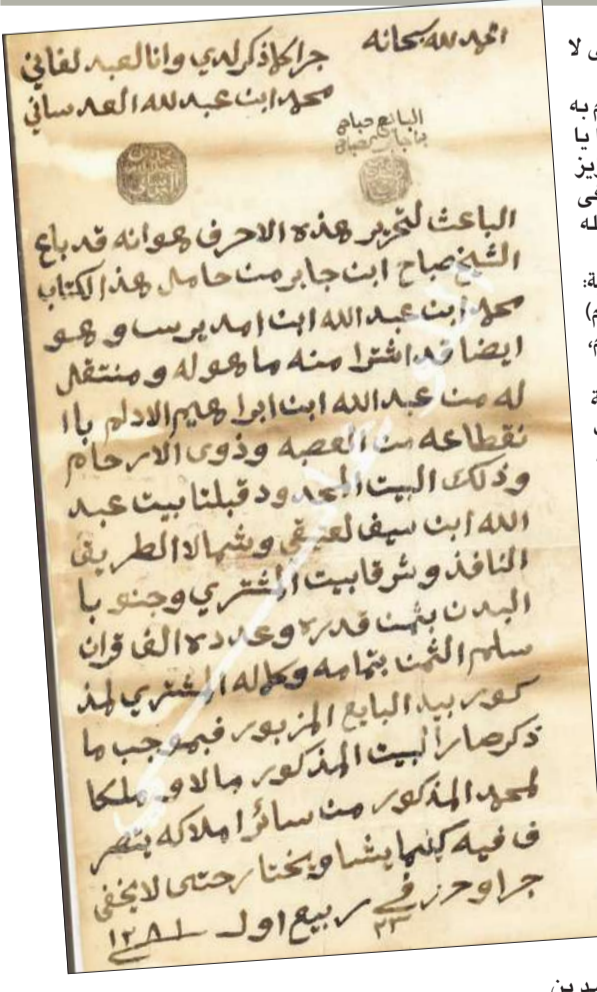 الحمد لله سبحانه
جرا كلما ذكر لدي وانا العبد لفاني
محمد ابن عبد لله العدساني
البائع صباح
بن جابر صباح
الباعث لتحرير هذه الاحرف هو انه قد باع
الشيخ صباح ابن جابر من حامل هذ الكتاب
محمد ابن عبد الله ابن امديرس وهو
ايضا قد اشترا منه ما هو له ومنتقل
له من عبد الله ابن ابراهيم الادلم باا
نقطاعه من العصبه وذوى الارحام
وذلك البيت المحدود قبلتا بيت عبد
الله ابن سيف لعتيقي وشمالا الطريق
النافذ وشرقا بيت المشتري وجنوبا
البدن بثمن قدره وعدده الف قران
سلم الثمن بتمامه وكماله المشتري لمذ
كور بيد البايع المزبور فبموجب ما
ذكر صار البيت المذكور مالا وملكا
لمحمد المذكور من سائر املاكه يتصر
ف فيه كيفما يشا ويختار حتى لا يخفى
جرا وحرر في ٢٣ ربيع اول ١٢٨١
ى لا
م به
يا
ريز
له
ة:
م)